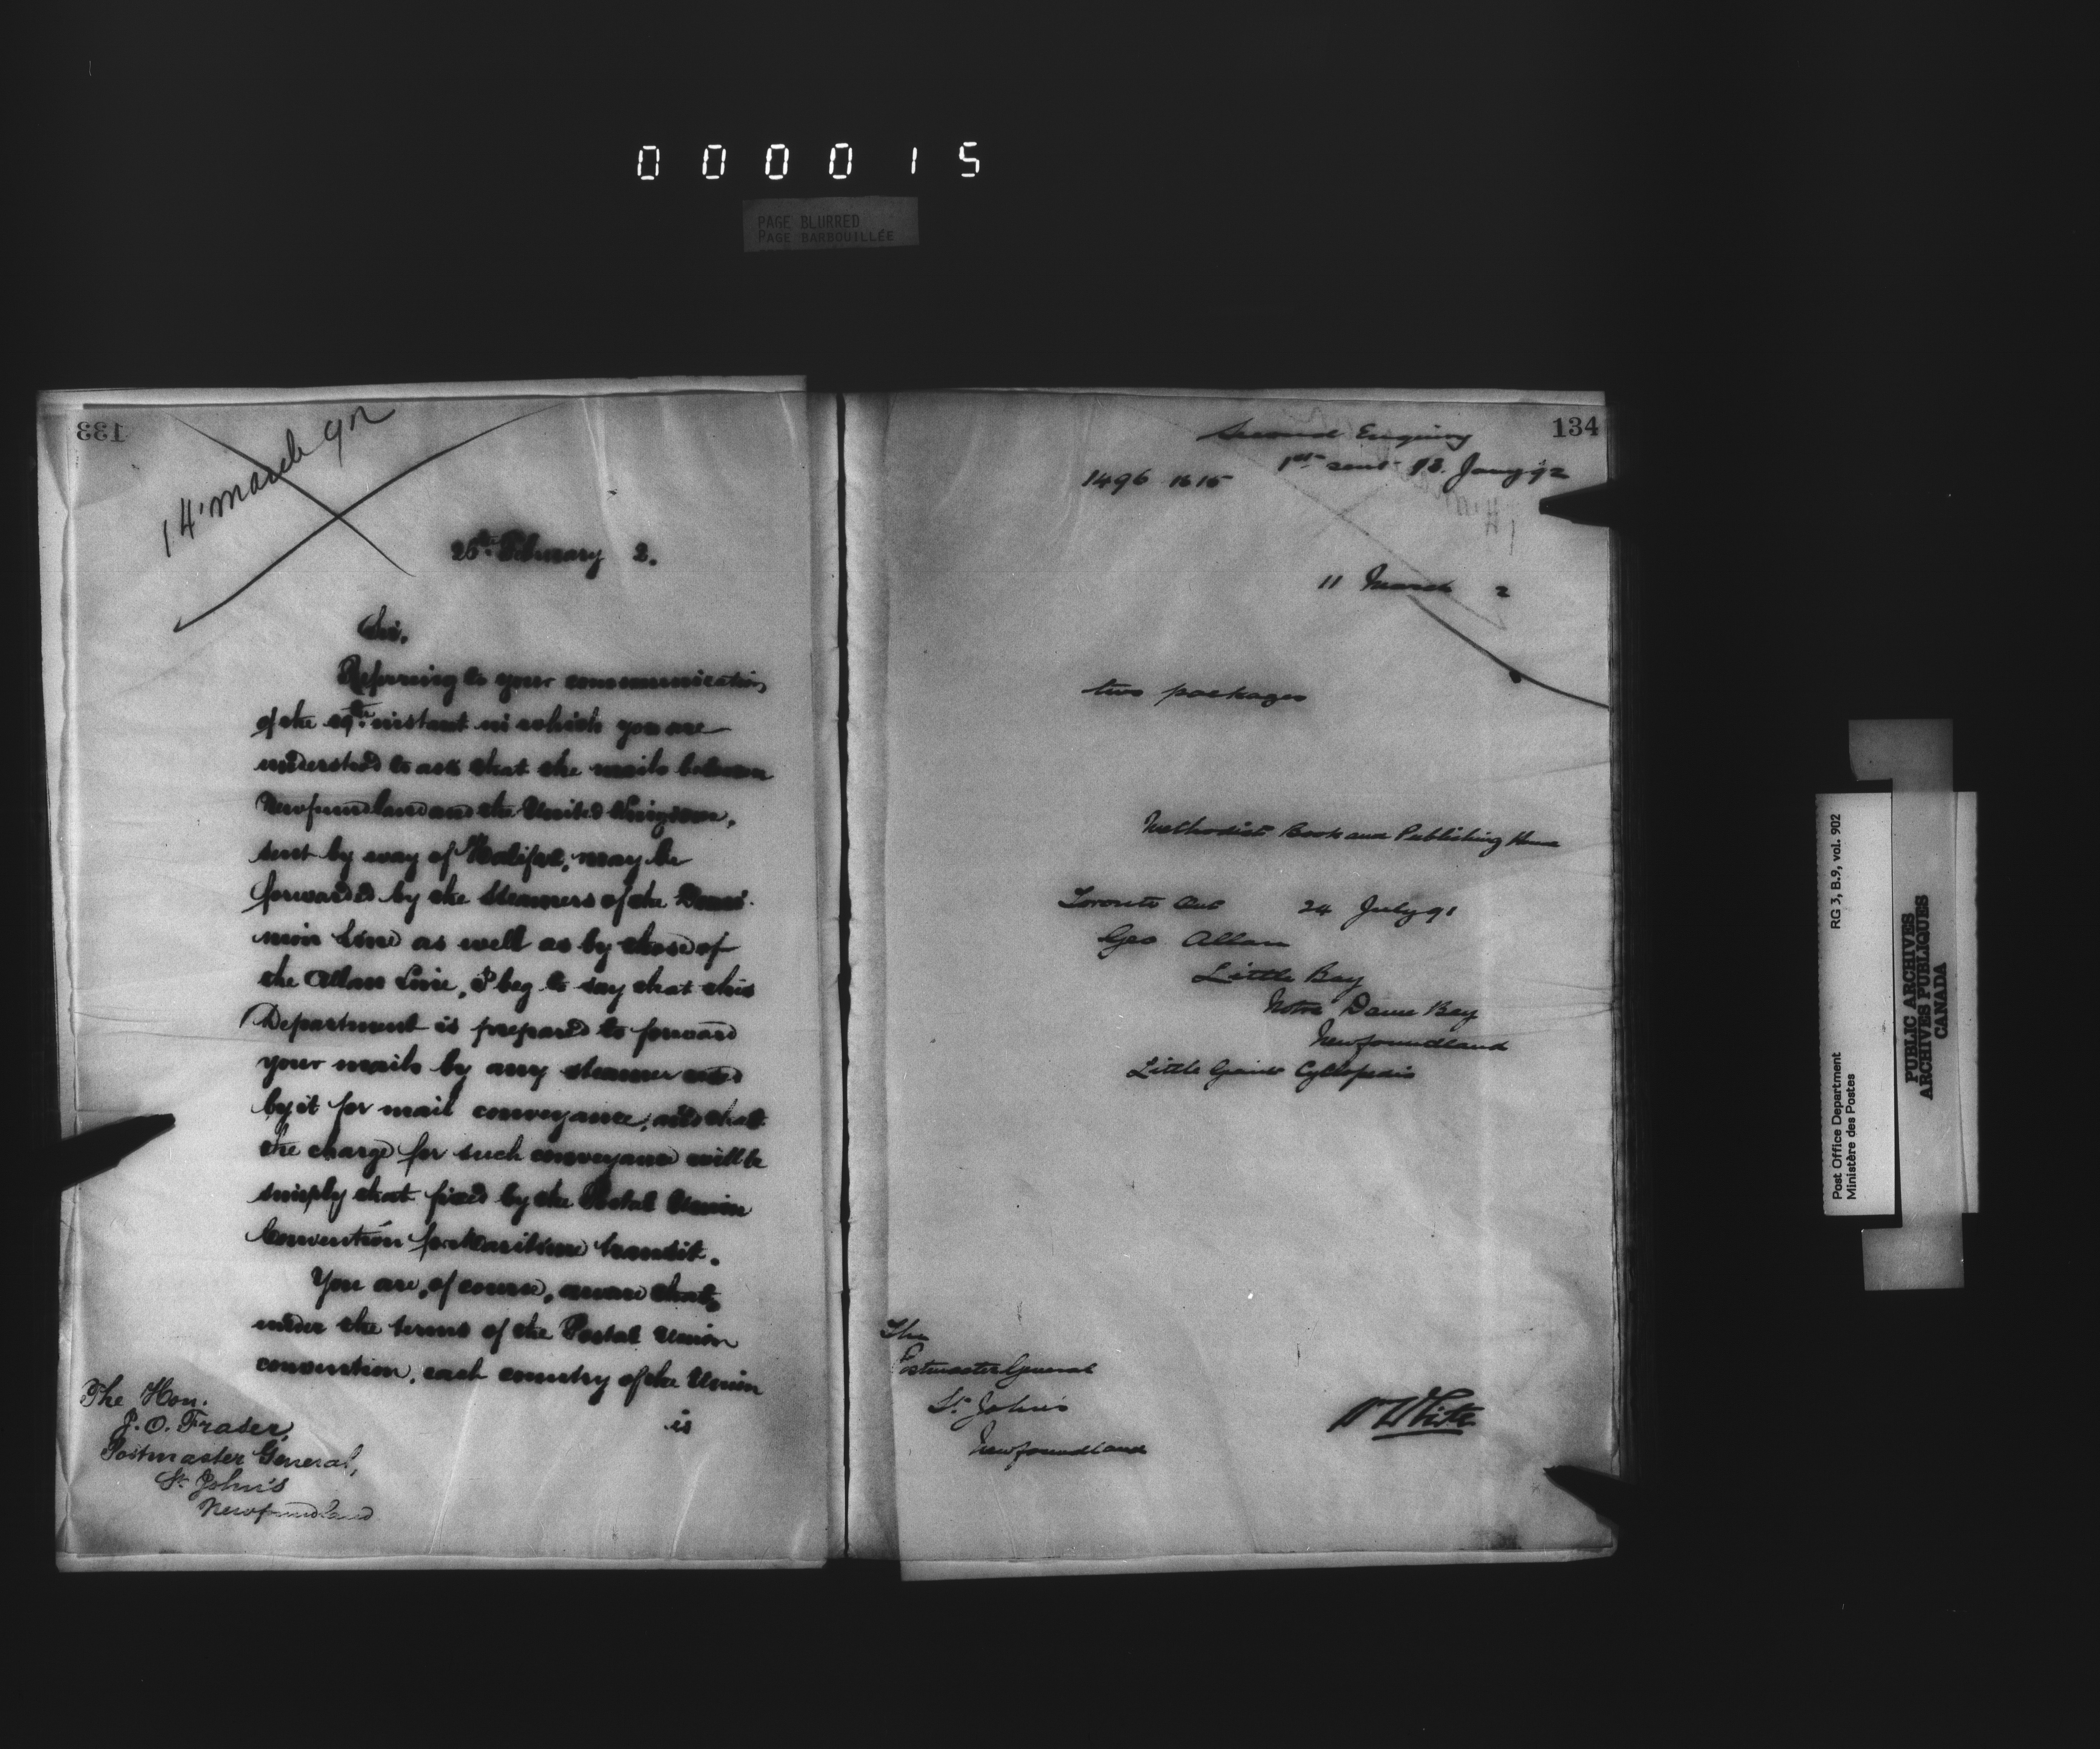 000015
PAGE BLURRED
PAGE BARBOUILLÉE
133
14 March 92
25th February 2.
Sir,
Referring to your communication
of the instant in which you are
understood to ask that the mails between
Newfoundland and the United Kingdom,
sent by way of Halifax, may be
forwarded by the Steamers of the Domi-
nion Line as well as by those of
the Allan Line, I beg to say that this
Department is prepared to forward
your mails by any steamer used
by it for mail conveyance, and that
the charge for such conveyance will be
simply that fixed by the Postal Union
Convention for Maritime transit.
You are, of course, aware that,
under the terms of the Postal Union
convention, each country of the Union
is
The Hon.
J. O. Fraser,
Postmaster General,
St. John's
Newfoundland
134
Second Enquiry
1496 1615 1st sent 13. Jany 92
11 March 2
two packages
Methodist Book and Publishing House
Toronto Ont 24 July 91
Geo Allan
Little Bay
Notre Dame Bay
Newfoundland
Little Giant Cyclopedia
The
Postmaster General
St. John's
Newfoundland
White
Post Office Department
Ministère des Postes
RG 3, B.9, vol. 902
PUBLIC ARCHIVES
ARCHIVES PUBLIQUES
CANADA